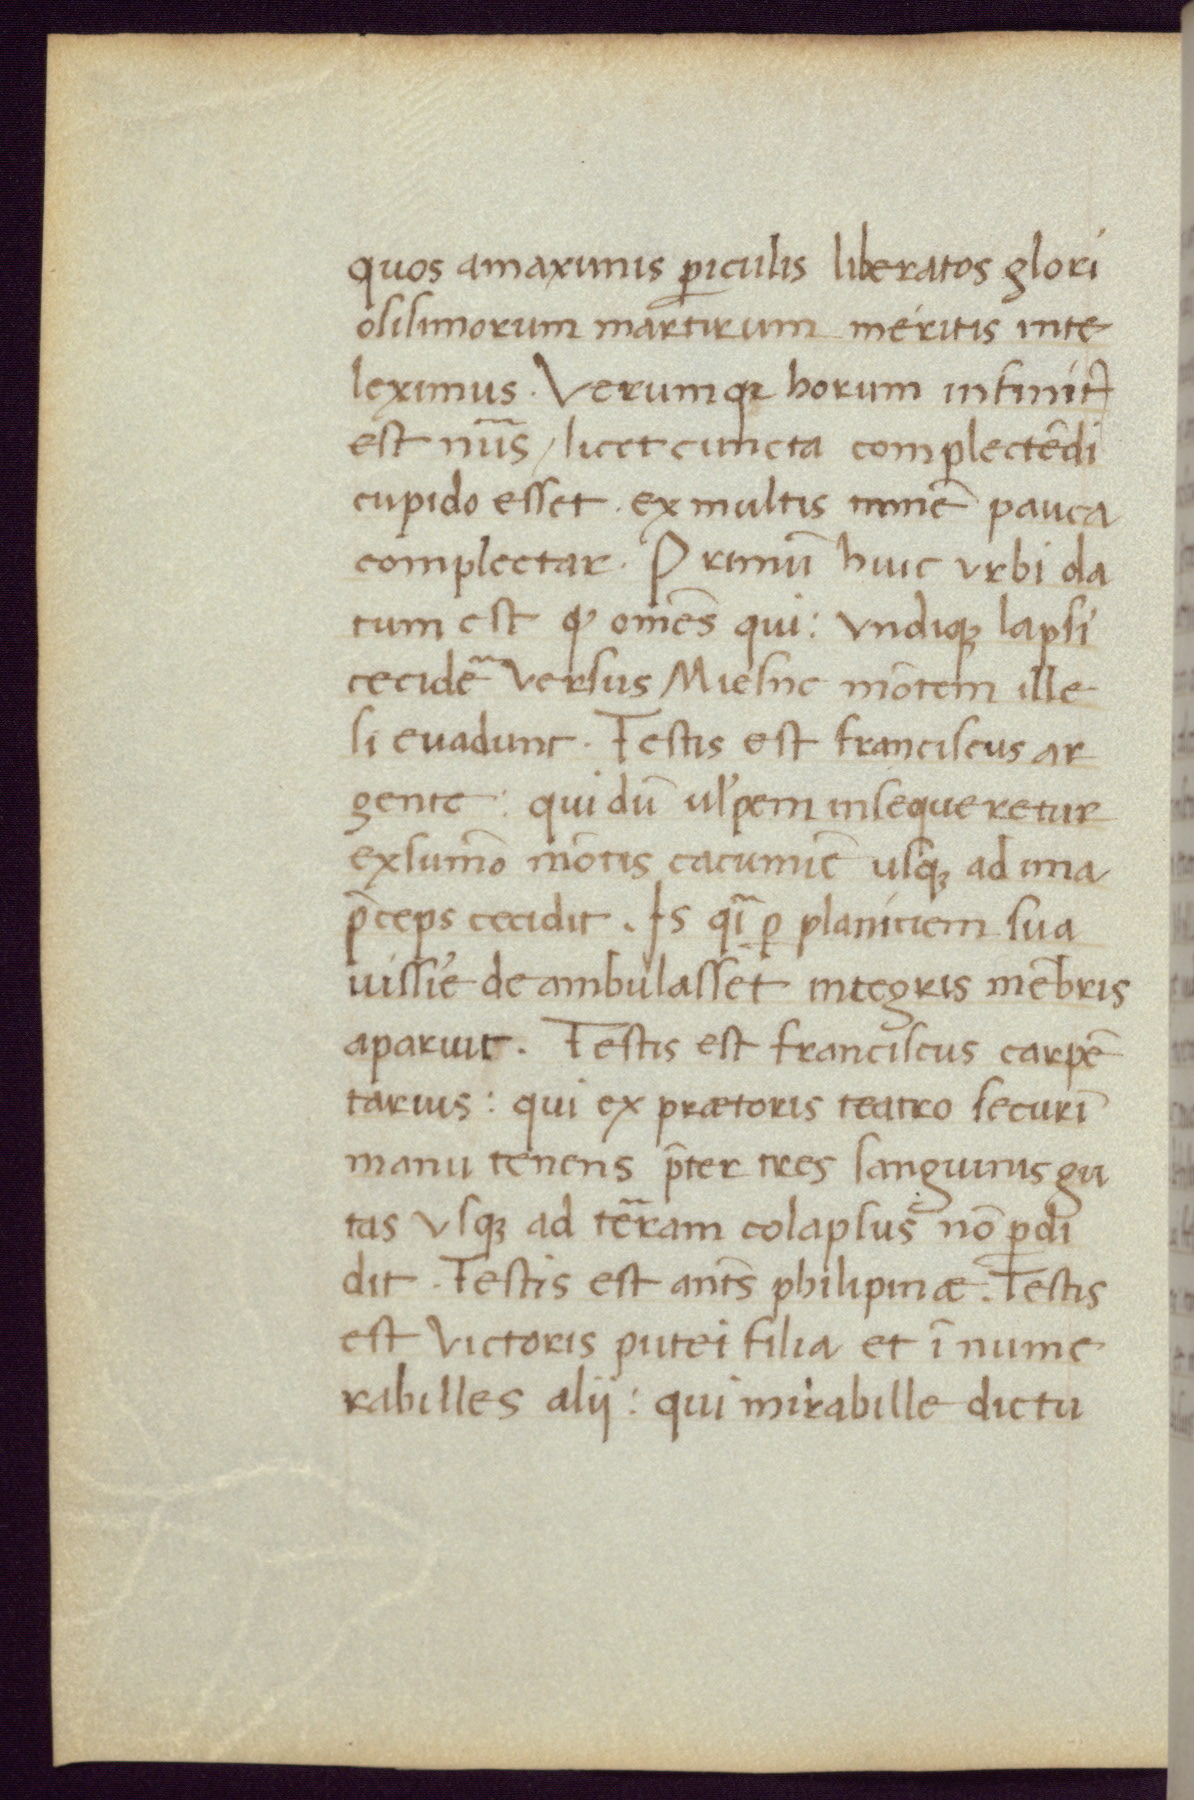 quos amaximis ꝑiculis liberatos glori
osisimorum martirum meritis inte
leximus. Verumqꝫ horum infinit
est nu͞s / licet cuncta complectēdi
cupido esset. ex multis pauca
complectar. Primū huic vrbi da
tum est ꝙ om̄es qui: vndiqꝫ lapsi
cecidē versus Miesne mōtem ille
si euadunt. Testis est franciscus ar
gente: qui dū ulpem insequeretur
exsum̄o mōtis cacumiē usqꝫ ad ima
p̄ceps cecidit. Is qī ꝑ planitiem sua
uissie deambulasset integris mēbris
aparuit. Testis est franciscus carpē
tarius: qui ex prætoris teatro securī
manu tenens p̄ter tres sanguinis gu
tas vsqꝫ ad tēram colapsus nō ꝑdi
dit. Testis est ant̄s philipinæ. Testis
est Victoris putei filia et ī nume
rabilles alij: qui mirabille dictu